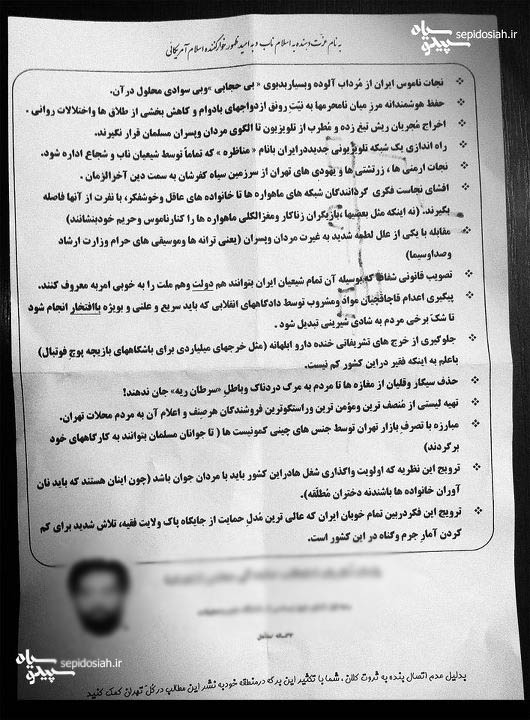 سپیدوسیاه sepidosiah.ir
به نام عزت دهنده به اسلام ناب و به امید ظهور خوارکننده اسلام آمریکائی
❖ نجات ناموس ایران از مُرداب آلوده وبسیاربدبوی « بی حجابی »وبی سوادی محلول درآن.
❖ حفظ هوشمندانه مرز میان نامحرمها به نیّتِ رونق ازدواجهای بادوام و کاهش بخشی از طلاق ها واختلالات روانی .
❖ اخراج مُجریان ریش تیغ زده و مُطرب از تلویزیون تا الگوی مردان وپسران مسلمان قرار نگیرند.
❖ راه اندازی یک شبکه تلویزیونی جدیددرایران بانام « مناظره » که تماماً توسط شیعیان ناب و شجاع اداره شود.
❖ نجات ارمنی ها ، زرتشتی ها و یهودی های تهران از سرزمین سیاه کفرشان به سمت دین آخرالزمان .
❖ افشای نجاست فکری گردانندگان شبکه های ماهواره ها تا خانواده های عاقل وخوشفکر، با نفرت از آنها فاصله
بگیرند. (نه اینکه مثل بعضیها ،بازیگران زناکار ومغزالکلی ماهواره ها را کنارناموس وحریم خودبنشانند)
❖ مقابله با یکی از علل لطمه شدید به غیرت مردان وپسران (یعنی ترانه ها وموسیقی های حرام وزارت ارشاد
وصداوسیما)
❖ تصویب قانونی شفاف که بوسیله آن تمام شیعیان ایران بتوانند هم دولت وهم ملت را به خوبی امربه معروف کنند.
❖ پیگیری اعدام قاچاقچیان مواد ومشروب توسط دادگاههای انقلابی که باید سریع و علنی و بویژه باافتخار انجام شود
تا شکّ برخی مردم به شادی شیرینی تبدیل شود .
❖ جلوگیری از خرج های تشریفاتی خنده دارو ابلهانه (مثل خرجهای میلیاردی برای باشگاههای بازیچه پوچ فوتبال)
باعلم به اینکه فقیر دراین کشور کم نیست.
❖ حذف سیگار وقلیان از مغازه ها تا مردم به مرگ دردناک وباطلِ «سرطان ریه» جان ندهند!
❖ تهیه لیستی از مُنصف ترین ومؤمن ترین وراستگوترین فروشندگان هرصنف و اعلام آن به مردم محلات تهران.
❖ مبارزه با تصرفِ بازار تهران توسط جنس های چینی کمونیست ها ( تا جوانان مسلمان بتوانند به کارگاههای خود
برگردند)
❖ ترویج این نظریه که اولویت واگذاری شغل هادراین کشور باید با مردان جوان باشد (چون اینان هستند که باید نان
آوران خانواده ها باشندنه دختران مُطلَقه).
❖ ترویج این فکردربین تمام خوبان ایران که عالی ترین مُدلِ حمایت از جایگاه پاک ولایت فقیه، تلاش شدید برای کم
کردن آمارِ جرم وگناه در این کشور است.
سپیدوسیاه sepidosiah.ir
بدلیل عدم اتصال بنده به ثروت کلان ،شما با تکثیر این برگه درمنطقه خود،به نشر این مطالب درکُل تهران کمک کنید